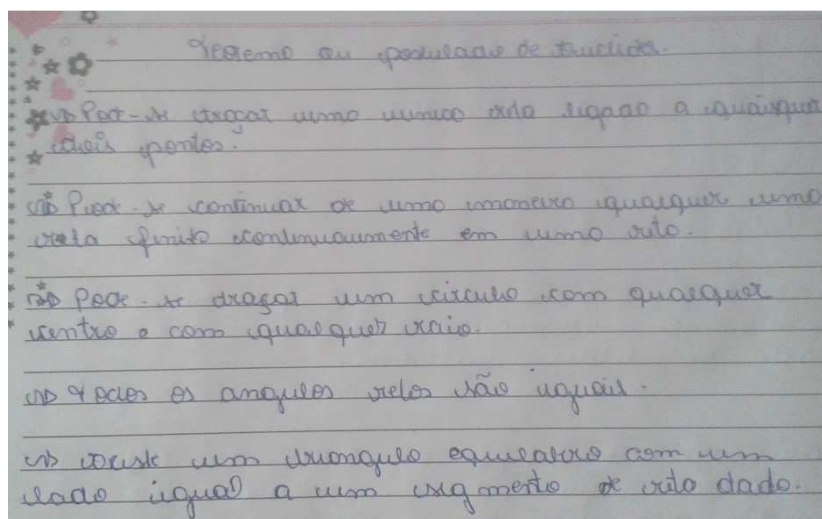 Teorema ou postulado de Euclides.
Pode-se traçar uma unica reta ligado a quaisquer
dois pontos.
Pode-se continuar de uma maneira qualquer uma
reta finita continuaumente em uma reta.
Pode-se traçar um circulo com qualquer
centro e com qualquer raio.
Todos os angulos retos são iguais.
existe um triangulo equilatero com um
lado igual a um segmento de reta dado.